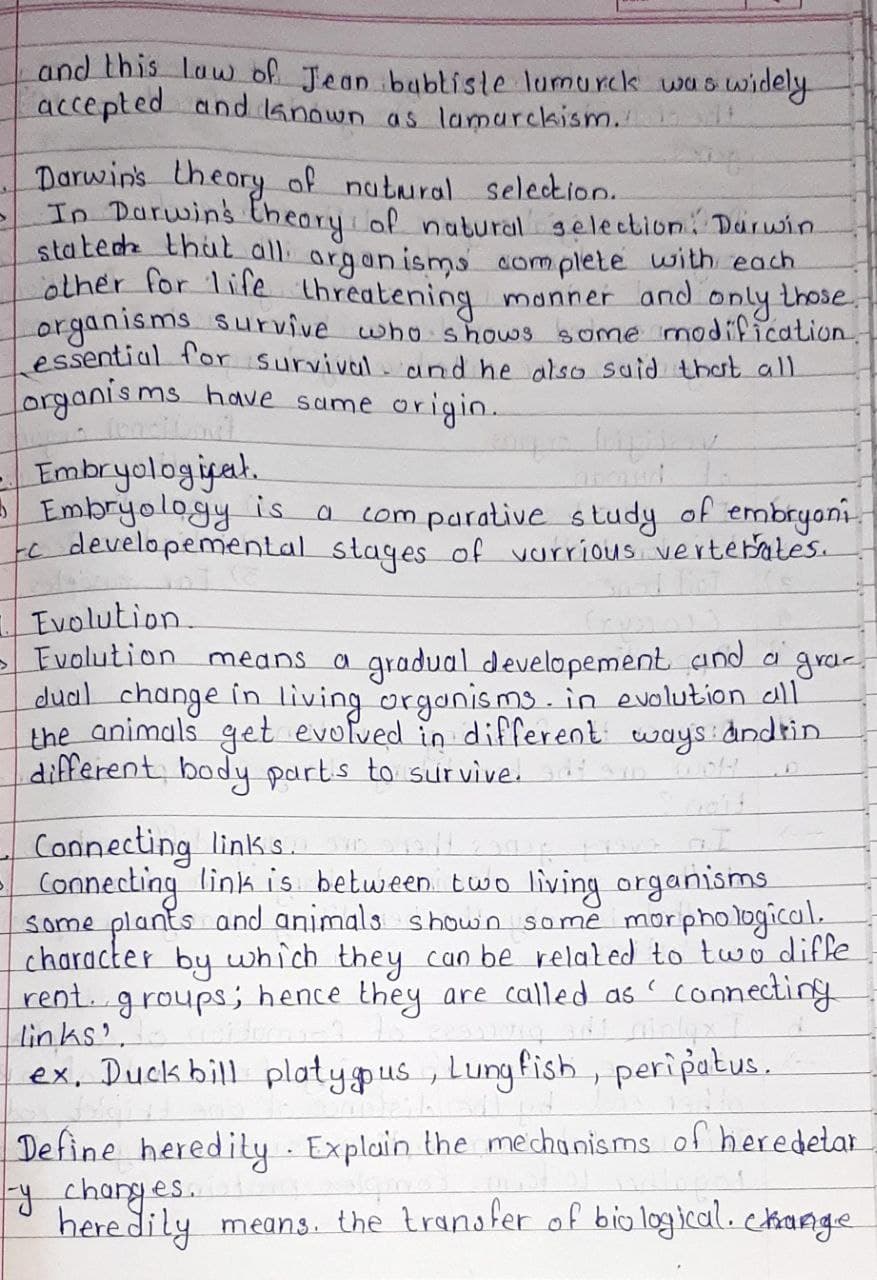 and this law of Jean babtiste lamarck was widely
accepted and known as lamarckism.
Darwin's theory of natural selection.
In Darwin's theory of natural selection. Darwin
stated that all organisms complete with each
other for life threatening manner and only those
organisms survive who shows some modification
essential for survival. and he also said that all
organisms have same origin.
Embryological.
Embryology is a comparative study of embryoni
-c developemental stages of varrious vertebrates.
Evolution.
Evolution means a gradual developement and a gra-
dual change in living organisms. in evolution all
the animals get evolved in different ways and in
different body parts to survive.
Connecting links.
Connecting link is between two living organisms
some plants and animals shown some morphological.
character by which they can be related to two diffe
rent groups; hence they are called as 'connecting
links'.
ex. Duckbill platypus, Lungfish, peripatus.
Define heredity. Explain the mechanisms of heredetar
-y changes.
heredity means. the transfer of biological. change